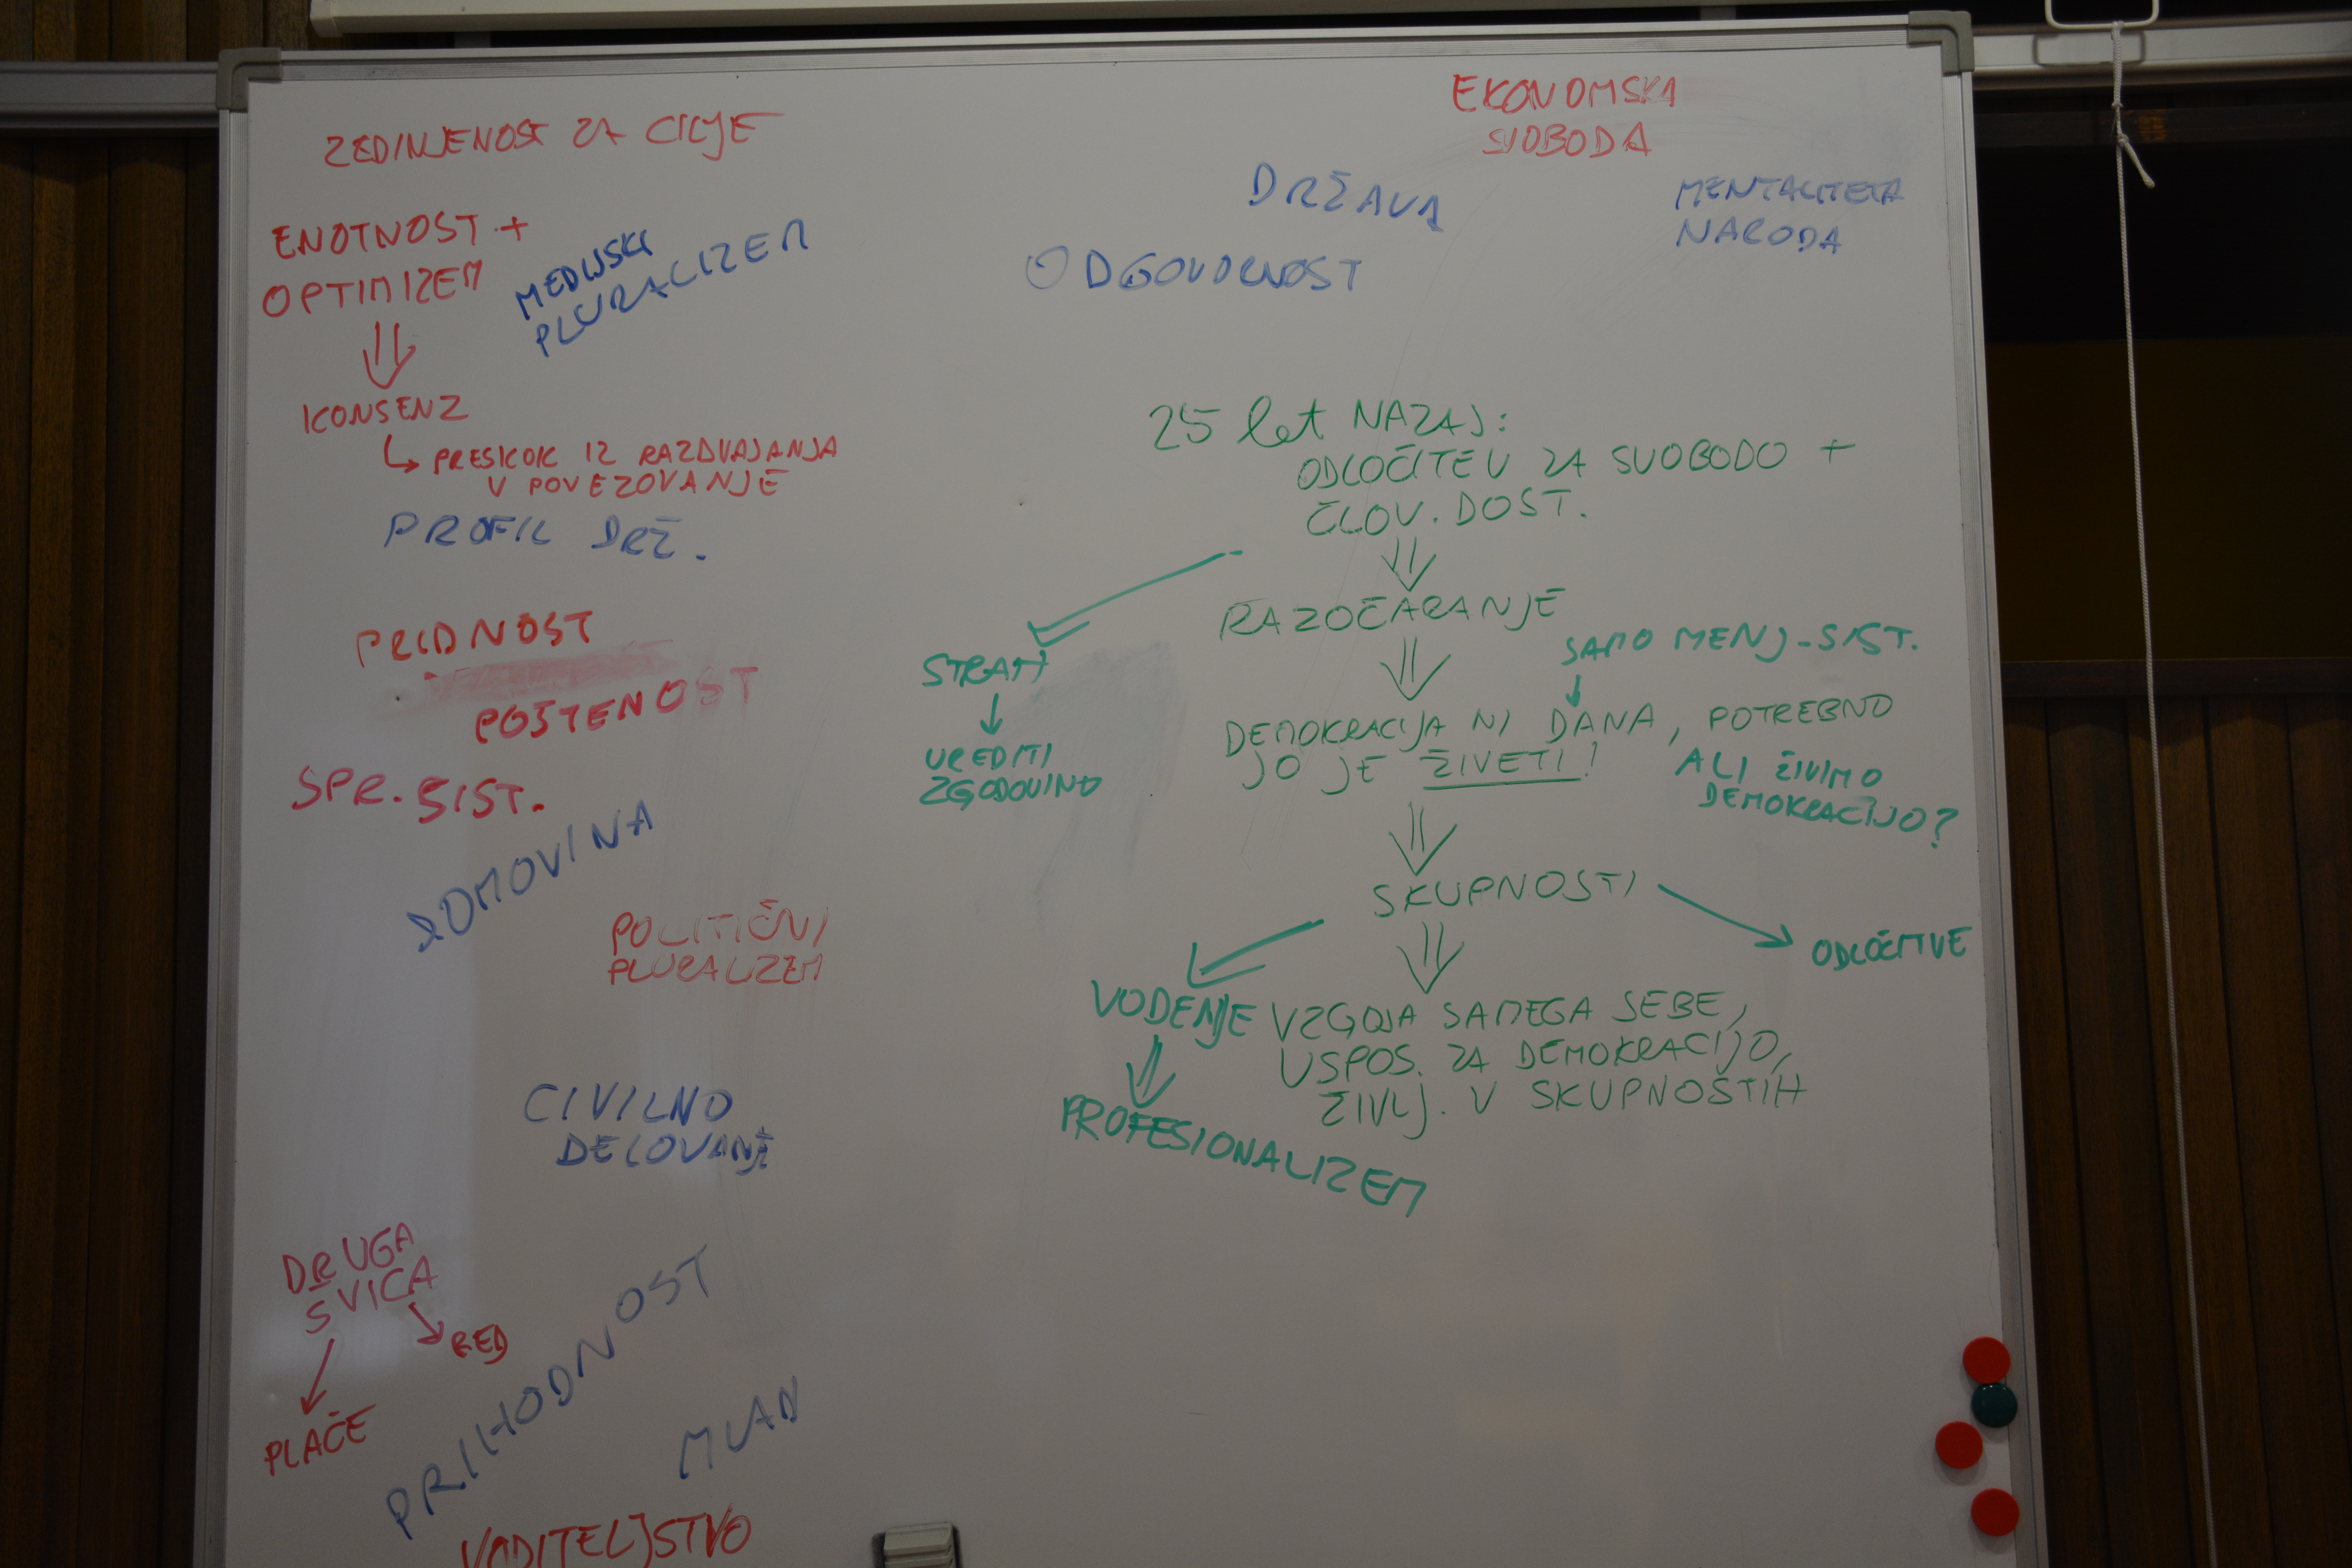 ZEDINJENOST ZA CILJE
ENOTNOST +
OPTIMIZEM
MEDIJSKI
PLURALIZEM
KONSENZ
PRESKOK IZ RAZDVAJANJA
V POVEZOVANJE
PROFIL DRŽ.
PRIDNOST
POŠTENOST
SPR. SIST.
DOMOVINA
POLITIČNI
PLURALIZEM
CIVILNO
DELOVANJE
DRUGA
ŠVICA
RED
PLAČE
PRIHODNOST
MLAD
VODITELJSTVO
EKONOMSKA
SVOBODA
DRŽAVA
MENTALITETA
NARODA
ODGOVORNOST
25 let NAZAJ:
ODLOČITEV ZA SVOBODO +
ČLOV. DOST.
RAZOČARANJE
STRAH
UREDITI
ZGODOVINO
SAMO MENJ. SIST.
DEMOKRACIJA NI DANA, POTREBNO
JO JE ŽIVETI!
ALI ŽIVIMO
DEMOKRACIJO?
SKUPNOSTI
ODLOČITVE
VODENJE
PROFESIONALIZEM
VZGOJA SAMEGA SEBE,
USPOS. ZA DEMOKRACIJO,
ŽIVLJ. V SKUPNOSTIH